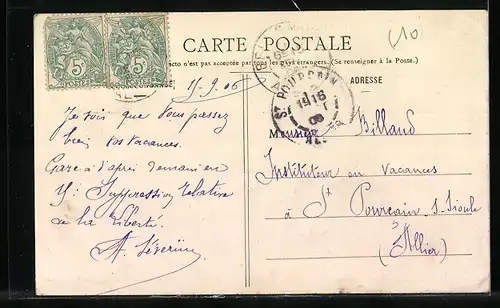 (10)
CARTE POSTALE
recto n'est pas acceptée par tous les pays étrangers. (Se renseigner à la Poste.)
ADRESSE
5c 5c
15-9-06
Je vois que vous passez
bien vos vacances.
Gare à d'après demain en
Suppression relative
de la liberté.
A. Séverin
ST POURÇAIN
15
06
ALLIER
Monsieur Billaud
Instituteur en vacances
à St Pourcain-s-Sioule
(Allier)